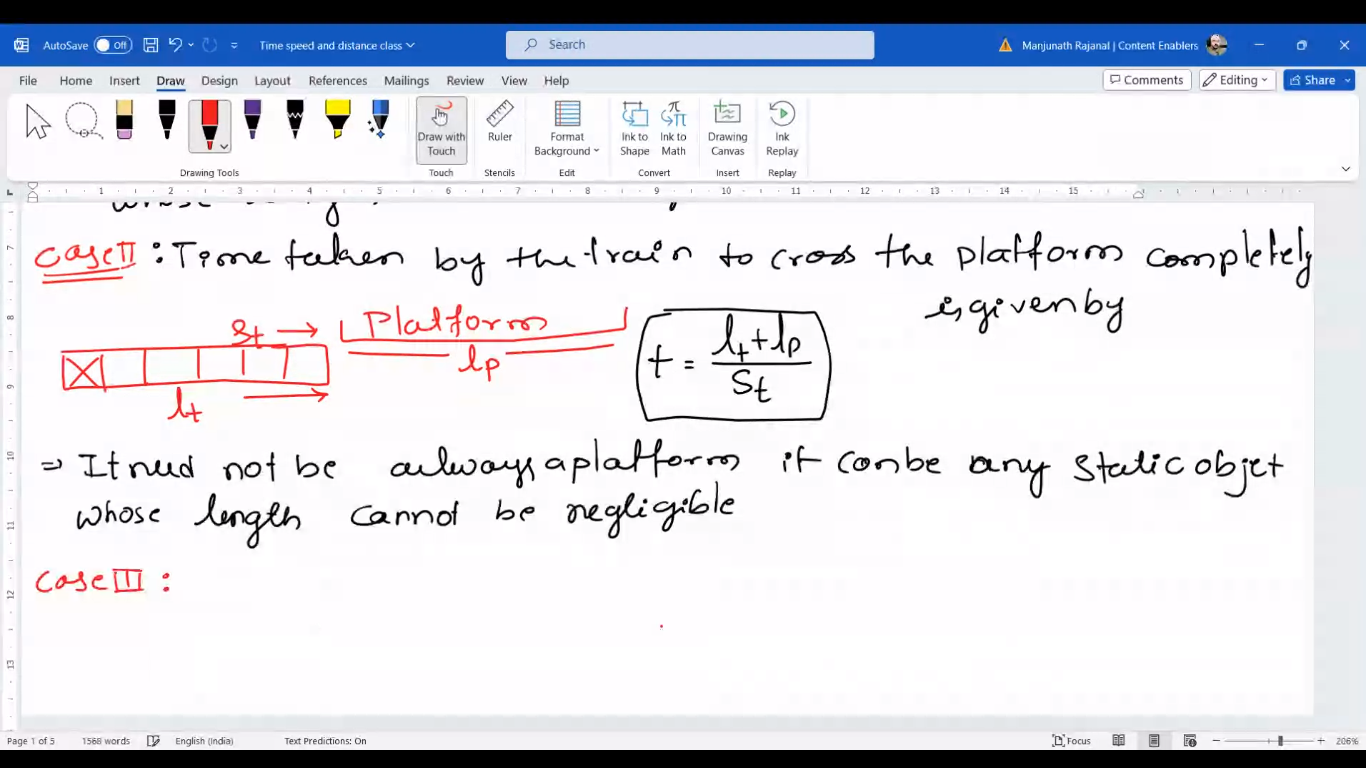 AutoSave Off Time speed and distance class Search Manjunath Rajanal | Content Enablers
File Home Insert Draw Design Layout References Mailings Review View Help Comments Editing Share
Draw with Touch Ruler Format Background Ink to Shape Ink to Math Drawing Canvas Ink Replay
Drawing Tools Touch Stencils Edit Convert Insert Replay
1 2 3 4 5 6 7 8 9 10 11 12 13 14 15
whose
case II : Time taken by the train to cross the platform completely
is given by
St → Platform
lt lp
t = lt + lp / St
⇒ It need not be always a platform it can be any static objet
whose length cannot be negligible
case III :
Page 1 of 5 1568 words English (India) Text Predictions: On Focus 206%